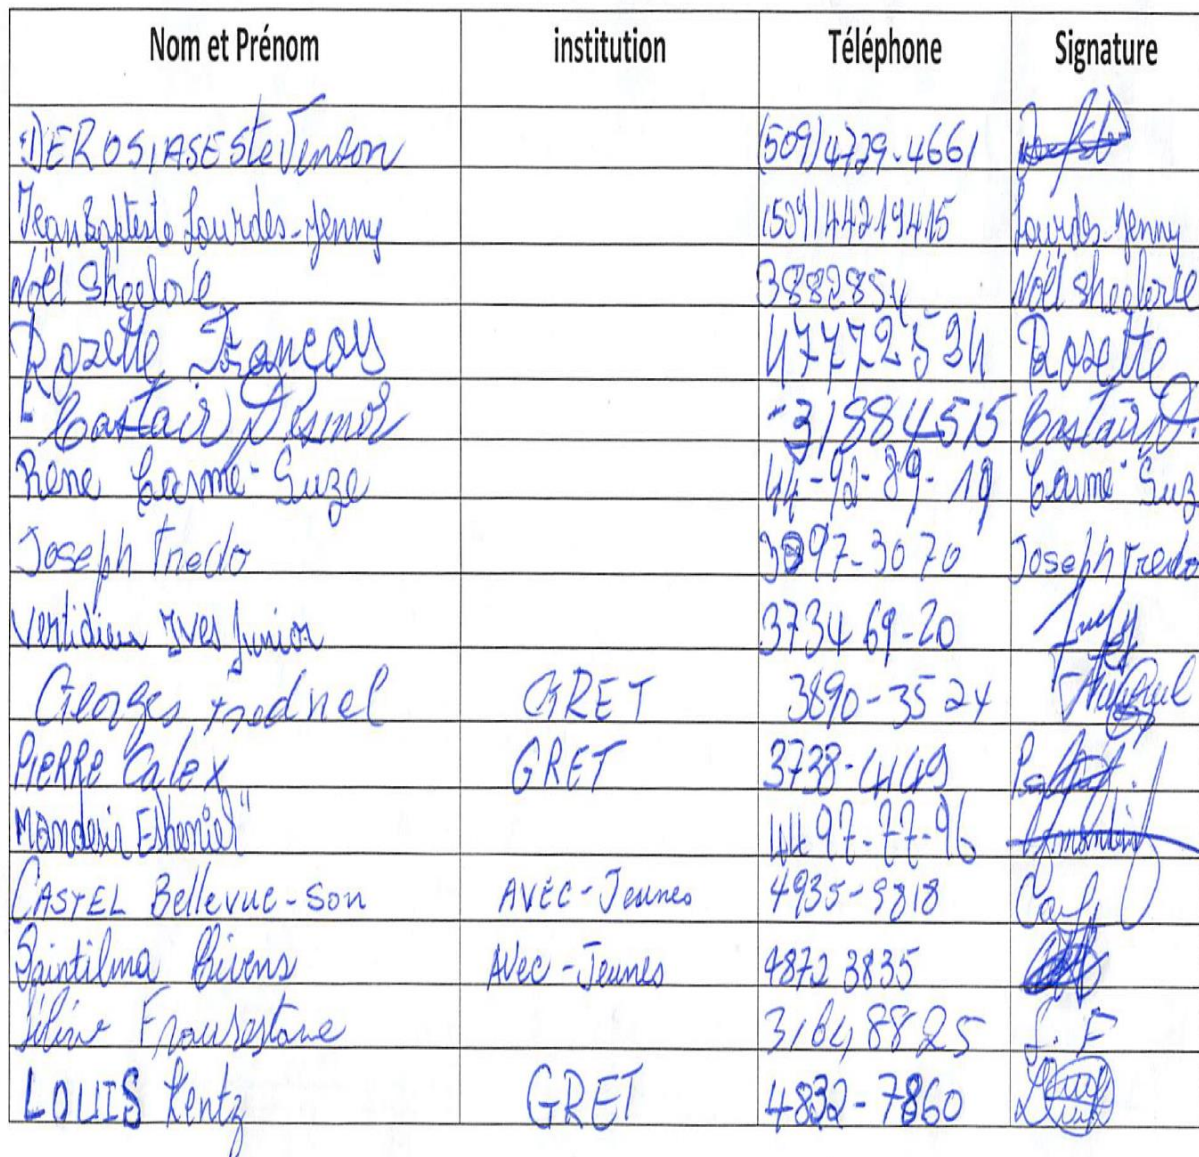 Nom et Prénom institution Téléphone Signature
DEROSIASE Stevenson (509)4729-4661
Jean Baptiste Lourdes-Jenny (509)44219415 Lourdes-Jenny
Noël Sheelove 3882854 Noël Sheelove
Rozette François 47772534 Rosette
Castair 31884515 Castair D.
Rene Carme-Suze 44-92-89-19 Carme Suz
Joseph Fredo 3097-3070 Joseph Fredo
Vertidieu Yves Junior 3734 69-20
Georges Frednel GRET 3890-3524
PIERRE Calex GRET 3738-4149
Mandesir 4497-77-96
CASTEL Bellevue-Son AVEC-Jeunes 4935-9818
Saintilma Bivens AVec-Jeunes 4872 3835
31648825 J. F
LOUIS Kentz GRET 4832-7860